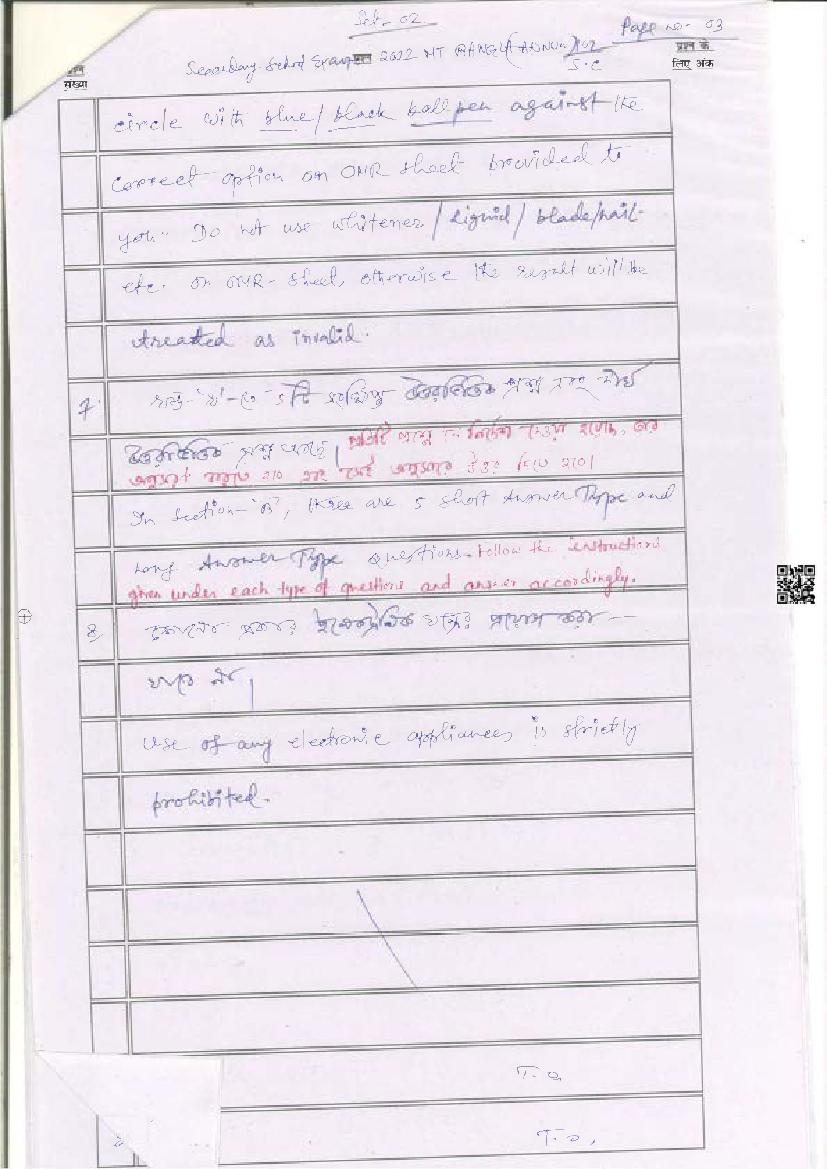 Set - 02
Page no - 03
Secondary School Exam 2022 MT BANGLA (ANNUAL) 102
S.C
প्रश्न के
लिए अंक
संख्या
circle with blue / black ball pen against the
correct option on OMR sheet provided to
you. Do not use whitener / liquid / blade / nail
etc. on OMR - Sheet, otherwise the result will be
treated as invalid.
7. খণ্ড-'ব'-তে 5টি সংক্ষিপ্ত উত্তরভিত্তিক প্রশ্ন এবং দীর্ঘ
উত্তরভিত্তিক প্রশ্ন আছে। প্রতিটি প্রশ্নে যে নির্দেশ দেওয়া হয়েছে, তার
অনুসরণ করতে হবে এবং সেই অনুসারে উত্তর দিতে হবে।
In Section-'B', there are 5 short Answer Type and
Long Answer Type questions. Follow the instructions
given under each type of questions and answer accordingly.
8. প্রকার ইলেকট্রনিক যন্ত্রের প্রয়োগ করা
যাবে না।
Use of any electronic appliances is strictly
prohibited.
T. O
T. O,